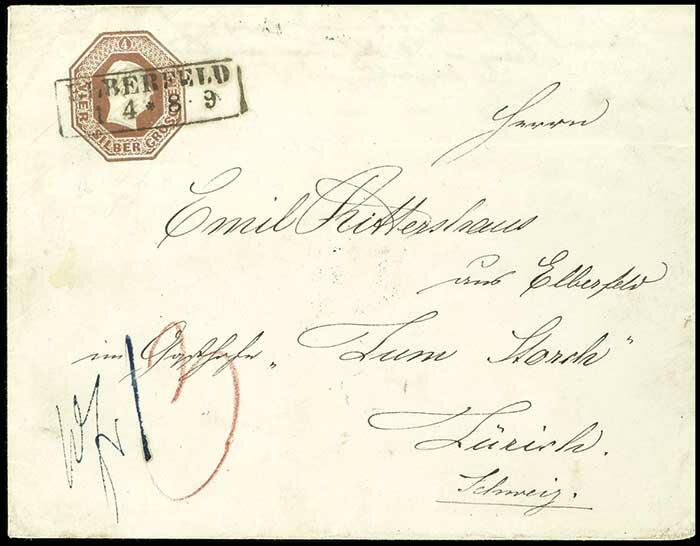 4
VIER SILBER GROSCHEN
ELBERFELD
14 * 8 9
Herrn
Emil Rittershaus
aus Elberfeld
im Gasthofe „Zum Storch“
Zürich.
Schweiz.
13